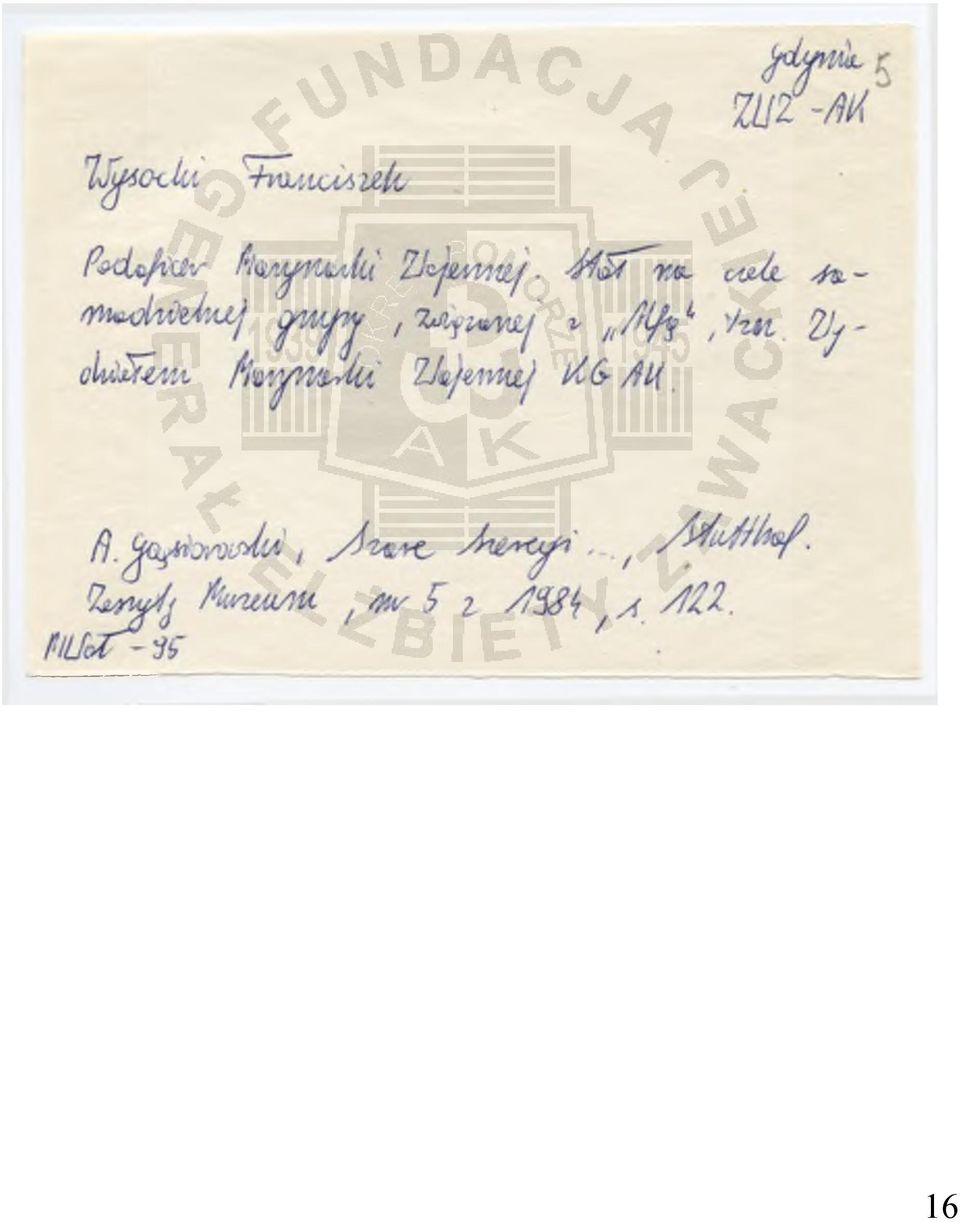 Gdynia 5
ZWZ - AK
Wysocki Franciszek
Podoficer Marynarki Wojennej. Stał na czele sa-
modzielnej grupy, związanej z „Alfą", tzn. Wy-
działem Marynarki Wojennej KG AK.
A. Gąsiorowski, Szare Szeregi ..., Stutthof.
Zeszyty Muzeum, nr 5 z 1984, s. 122.
- 95
FUNDACJA GENERAŁ ELŻBIETY ZAWACKIEJ
OKRĘG POMORZE
1939 1945
AK
16